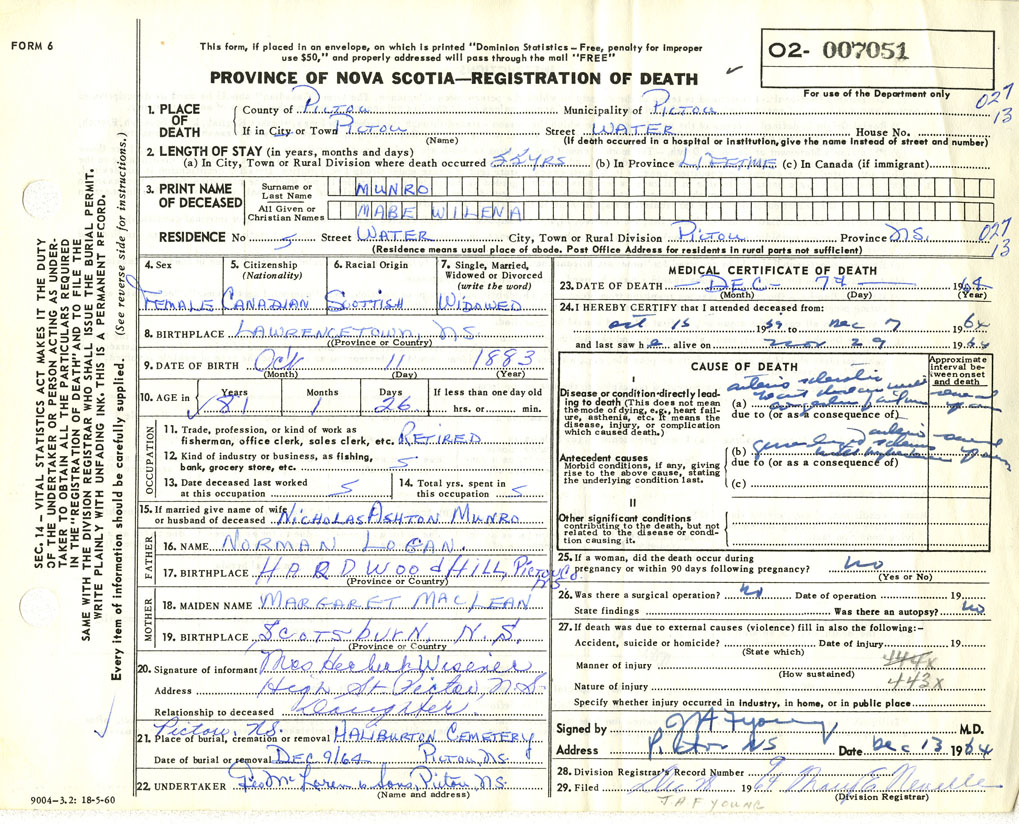 FORM 6
This form, if placed in an envelope, on which is printed "Dominion Statistics – Free, penalty for improper
use $50," and properly addressed will pass through the mail "FREE"
PROVINCE OF NOVA SCOTIA—REGISTRATION OF DEATH
02- 007051
For use of the Department only
027
13
1. PLACE OF DEATH
County of PICTOU Municipality of PICTOU
If in City or Town PICTOU Street WATER House No.
(Name) (If death occurred in a hospital or institution, give the name instead of street and number)
2. LENGTH OF STAY (in years, months and days)
(a) In City, Town or Rural Division where death occurred 55 YRS (b) In Province LIFETIME (c) In Canada (if immigrant)
3. PRINT NAME OF DECEASED
Surname or Last Name MUNRO
All Given or Christian Names MABE WILENA
RESIDENCE No 5 Street WATER City, Town or Rural Division PICTOU Province N.S.
027
13
(Residence means usual place of abode. Post Office Address for residents in rural parts not sufficient)
4. Sex FEMALE
5. Citizenship (Nationality) CANADIAN
6. Racial Origin SCOTTISH
7. Single, Married, Widowed or Divorced (write the word) WIDOWED
8. BIRTHPLACE LAWRENCETOWN, N.S.
(Province or Country)
9. DATE OF BIRTH Oct 11 1883
(Month) (Day) (Year)
10. AGE in Years 81 Months 1 Days 26 If less than one day hrs. or min.
OCCUPATION
11. Trade, profession, or kind of work as fisherman, office clerk, sales clerk, etc. RETIRED
12. Kind of industry or business, as fishing, bank, grocery store, etc. 5
13. Date deceased last worked at this occupation 5
14. Total yrs. spent in this occupation 5
15. If married give name of wife or husband of deceased NICHOLAS ASHTON MUNRO
FATHER
16. NAME NORMAN LOGAN.
17. BIRTHPLACE HARDWOOD HILL, PICTOU Co. N.S
(Province or Country)
MOTHER
18. MAIDEN NAME MARGARET MACLEAN
19. BIRTHPLACE SCOTSBURN. N.S.
(Province or Country)
20. Signature of informant Mrs Herbert Wisener
Address High St Pictou, N.S.
Relationship to deceased Daughter
Pictou, N.S.
21. Place of burial, cremation or removal HALIBURTON CEMETERY
Date of burial or removal DEC 9/64 PICTOU, N.S.
22. UNDERTAKER & Sons, Pictou, N.S.
(Name and address)
9004-3.2: 18-5-60
MEDICAL CERTIFICATE OF DEATH
23. DATE OF DEATH DEC- 7th 1964
(Month) (Day) (Year)
24. I HEREBY CERTIFY that I attended deceased from:
Oct 15 1959 to Dec 7 1964
and last saw her alive on Nov 29 1964
CAUSE OF DEATH
Approximate interval between onset and death
I
Disease or condition directly leading to death (This does not mean the mode of dying, e.g., heart failure, asthenia, etc. It means the disease, injury, or complication which caused death.)
(a) arterio sclerotic heart disease with
due to (or as a consequence of)
Antecedent causes
Morbid conditions, if any, giving rise to the above cause, stating the underlying condition last.
(b) generalized arterio sclerosis
due to (or as a consequence of)
(c)
II
Other significant conditions
contributing to the death, but not related to the disease or condition causing it.
25. If a woman, did the death occur during pregnancy or within 90 days following pregnancy? no
(Yes or No)
26. Was there a surgical operation? no Date of operation 19
State findings Was there an autopsy? no
27. If death was due to external causes (violence) fill in also the following:–
Accident, suicide or homicide? Date of injury 19
(State which)
444X
Manner of injury
(How sustained)
443X
Nature of injury
Specify whether injury occurred in industry, in home, or in public place
Signed by J A F Young M.D.
Address Pictou NS Date Dec 13 1964
28. Division Registrar's Record Number
29. Filed Dec 1964 Mary E.
(Division Registrar)
J A F YOUNG
SEC. 14 – VITAL STATISTICS ACT MAKES IT THE DUTY
OF THE UNDERTAKER OR PERSON ACTING AS UNDER-
TAKER TO OBTAIN ALL THE PARTICULARS REQUIRED
IN THE "REGISTRATION OF DEATH" AND TO FILE THE
SAME WITH THE DIVISION REGISTRAR WHO SHALL ISSUE THE BURIAL PERMIT.
WRITE PLAINLY WITH UNFADING INK. THIS IS A PERMANENT RECORD.
Every item of information should be carefully supplied. (See reverse side for instructions.)